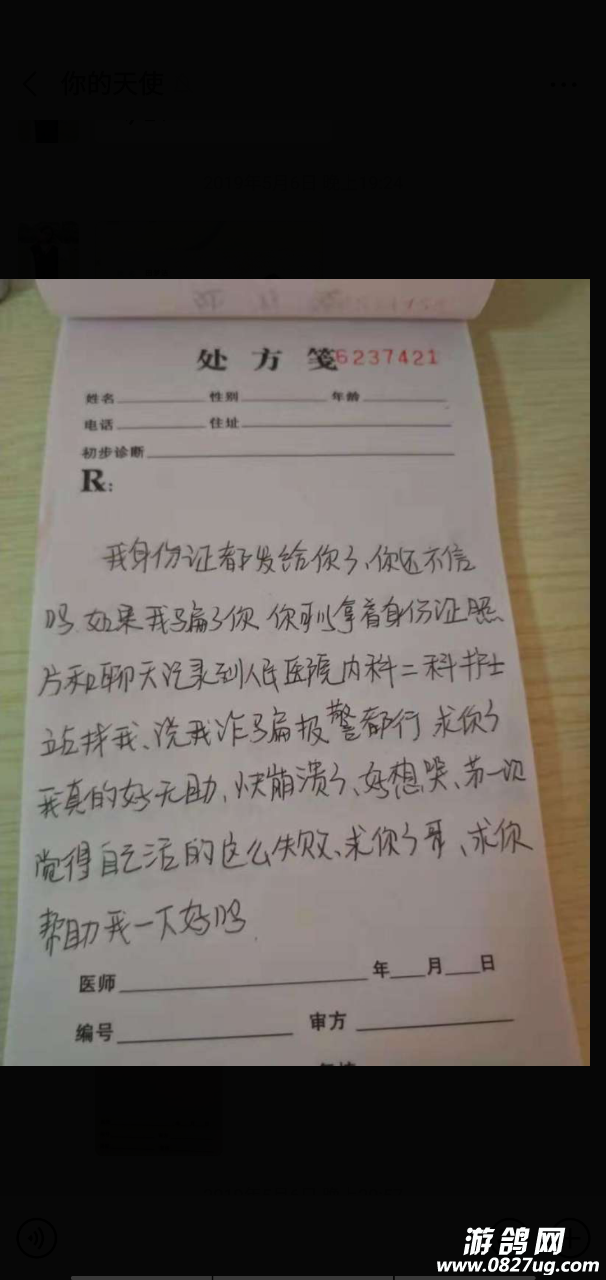 你的天使
处方笺6237421
姓名 性别 年龄
电话 住址
初步诊断
R:
我身份证都发给你了、你还不信
吗 如果我骗了你 你可以拿着身份证照
片和聊天记录到人民医院内科二科护士
站找我、说我诈骗报警都行 求你了
我真的好无助、快崩溃了、好想哭、第一次
觉得自己活的这么失败、求你了哥、求你
帮助我一下好吗
医师 年 月 日
编号 审方
游鸽网
www.0827ug.com